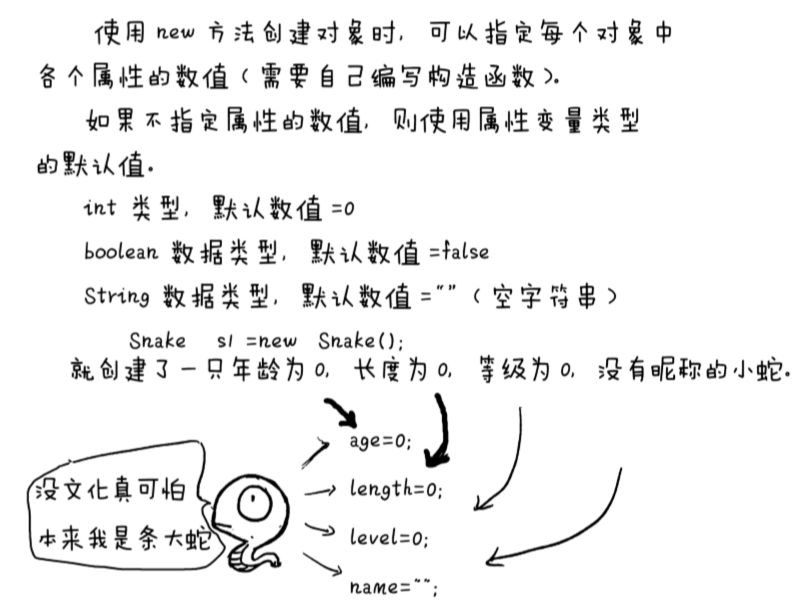 使用new方法创建对象时, 可以指定每个对象中
各个属性的数值(需要自己编写构造函数)。
如果不指定属性的数值, 则使用属性变量类型
的默认值。
int 类型, 默认数值=0
boolean 数据类型, 默认数值=false
String 数据类型, 默认数值=""(空字符串)
Snake s1 =new Snake();
就创建了一只年龄为0, 长度为0, 等级为0, 没有昵称的小蛇。
age=0;
没文化真可怕
length=0;
本来我是条大蛇
level=0;
name="";